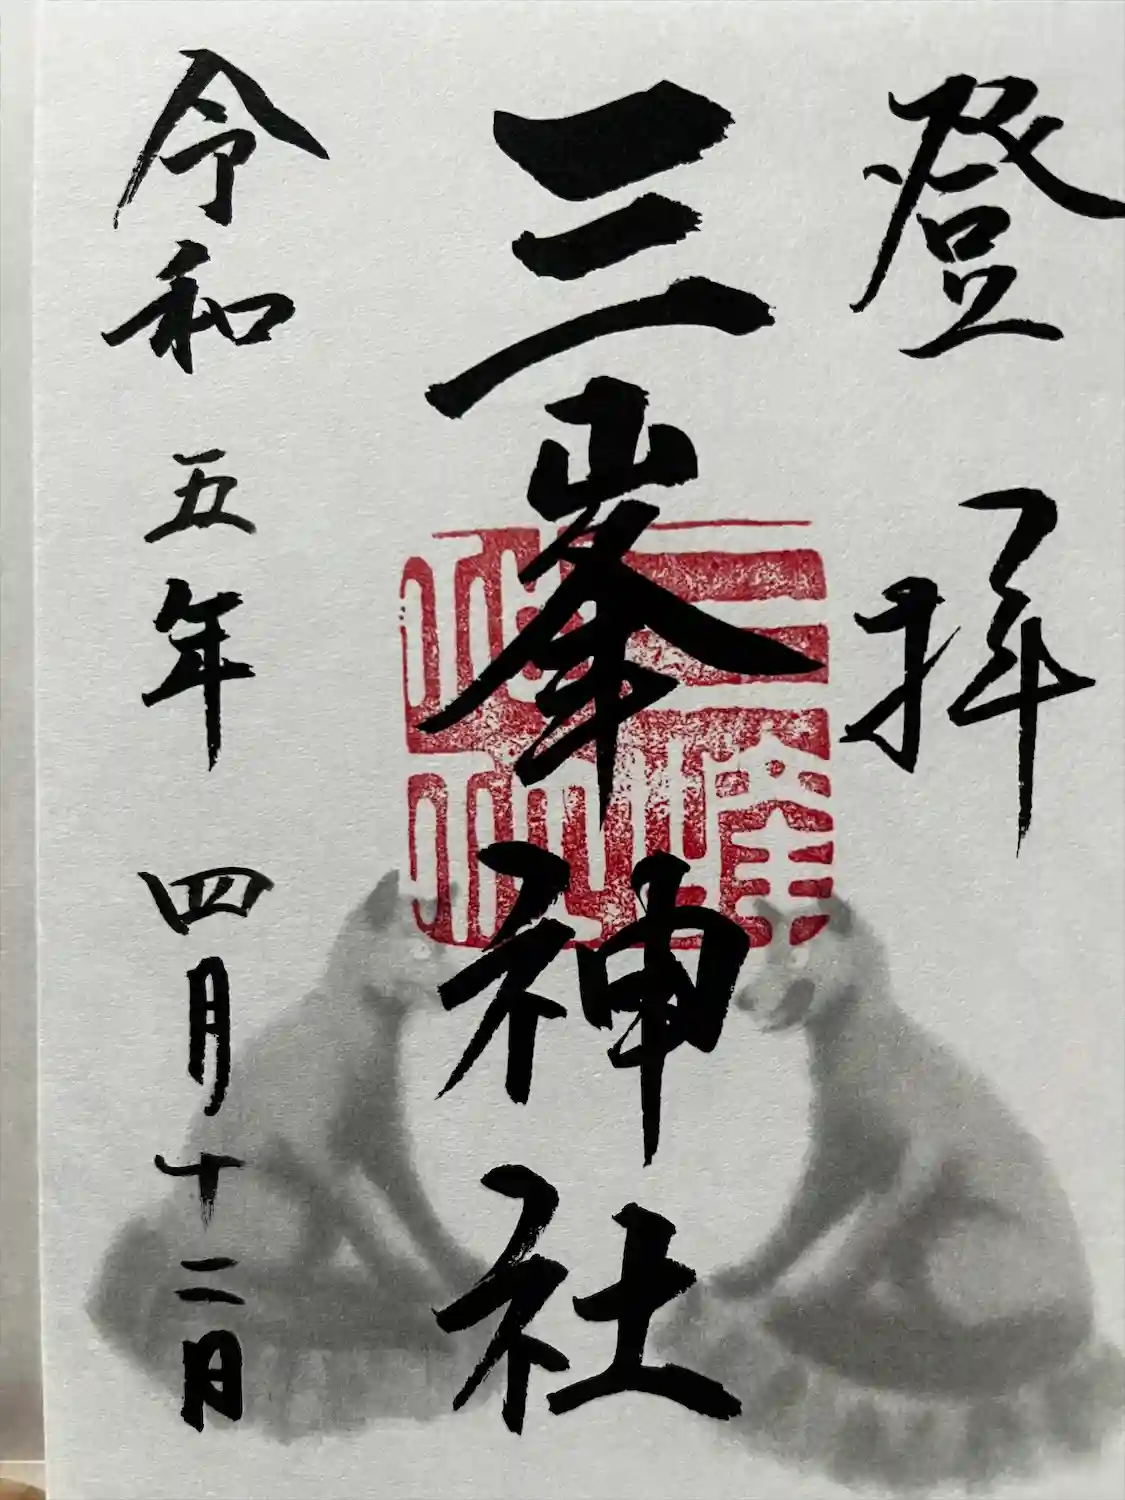 登拝
三峯神社
令和五年四月十二日